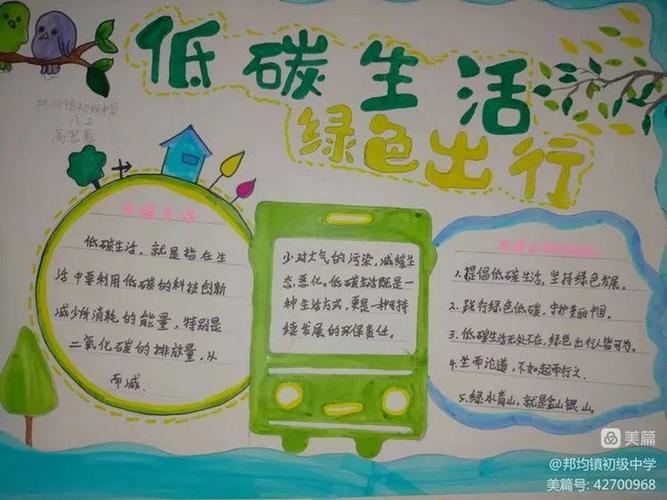 低碳生活
绿色出行
邦均镇初级中学
八2
低碳生活
低碳生活，就是指在生
活中要利用低碳的科技创新
减少所消耗的能量，特别是
二氧化碳的排放量，从
而减
少对大气的污染，减缓生
态恶化。低碳生活既是一
种生活方式，更是一种可持
续发展的环保责任。
1.提倡低碳生活，坚持绿色发展。
2.践行绿色低碳，守护美丽中国。
3.低碳生活无处不在，绿色出行人皆可为。
4.坐而论道，不如起而行文.
5.绿水青山，就是金山银山。
美篇
@邦均镇初级中学
美篇号: 42700968